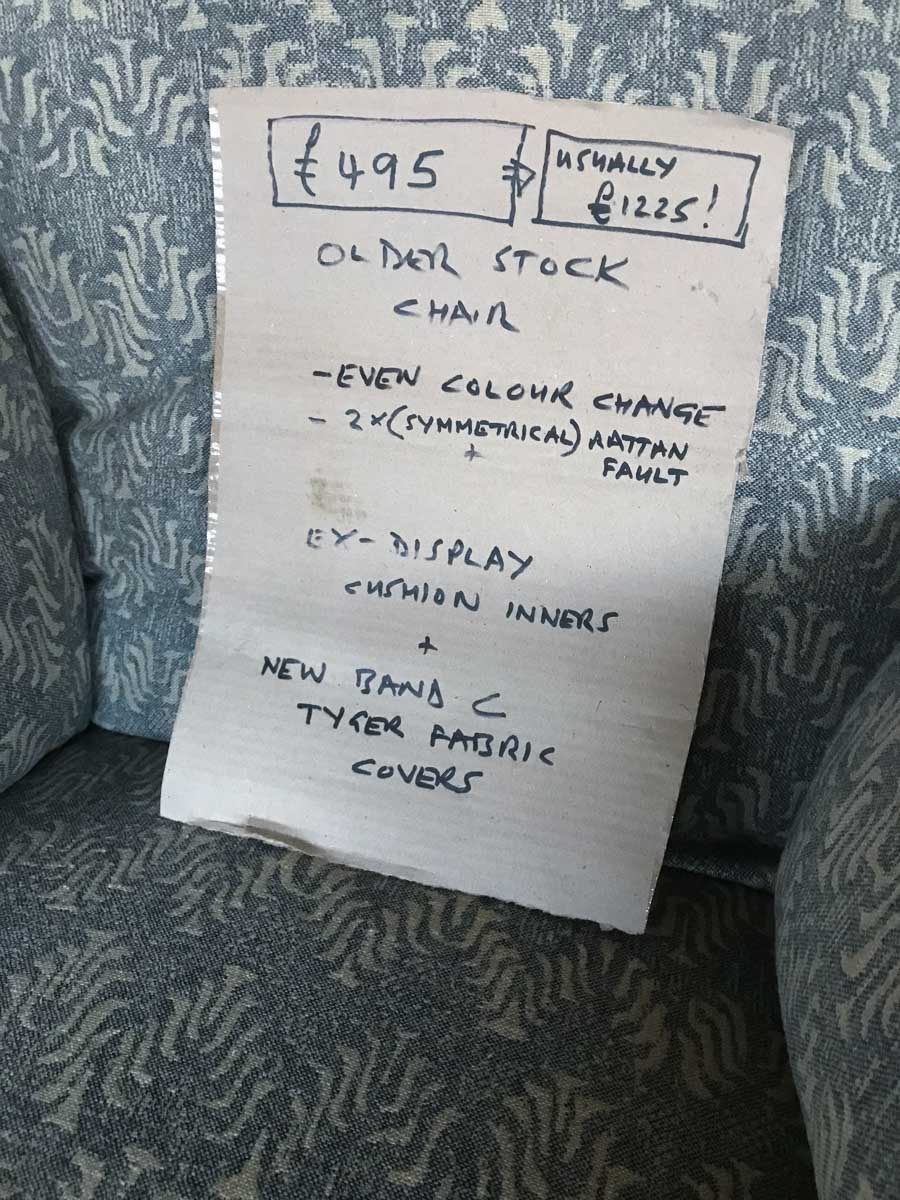 £495 ⇒ USUALLY
£1225!
OLDER STOCK
CHAIR
- EVEN COLOUR CHANGE
- 2x (SYMMETRICAL) RATTAN
+ FAULT
EX-DISPLAY
CUSHION INNERS
+
NEW BAND C
TYGER FABRIC
COVERS